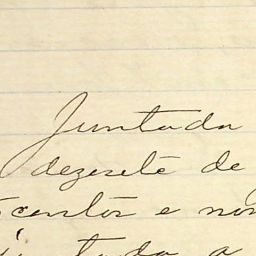 Juntada
dezesete de
centos e no
tado a